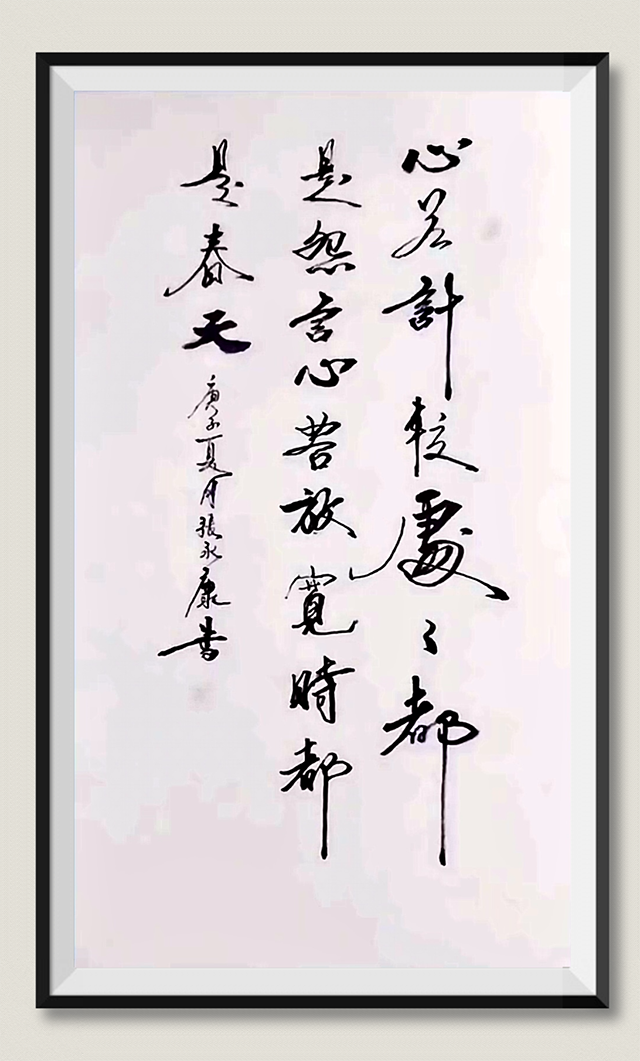 心若計較處々都
是怨言心若放寬時都
是春天
庚子夏月張永康書